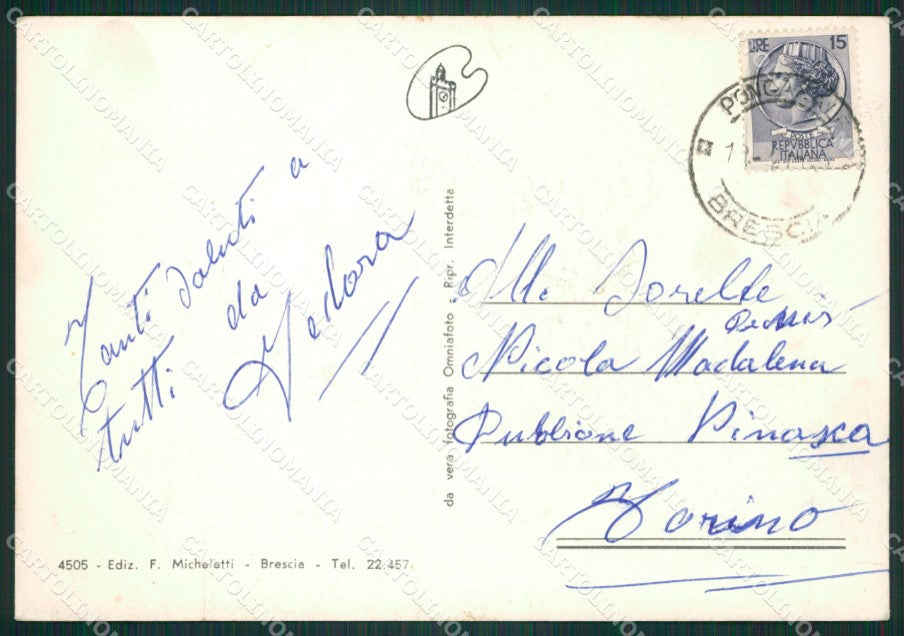 LIRE 15
POSTE
REPVBBLICA
ITALIANA
BRESCIA
Tanti saluti a
tutti da
da vera fotografia Omniafoto - Ripr. Interdetta
Alle Sorelle
Nicola Madalena
Dubbione Pinasca
Torino
4505 - Ediz. F. Micheletti - Brescia - Tel. 22-457
CARTOLINOMANIA